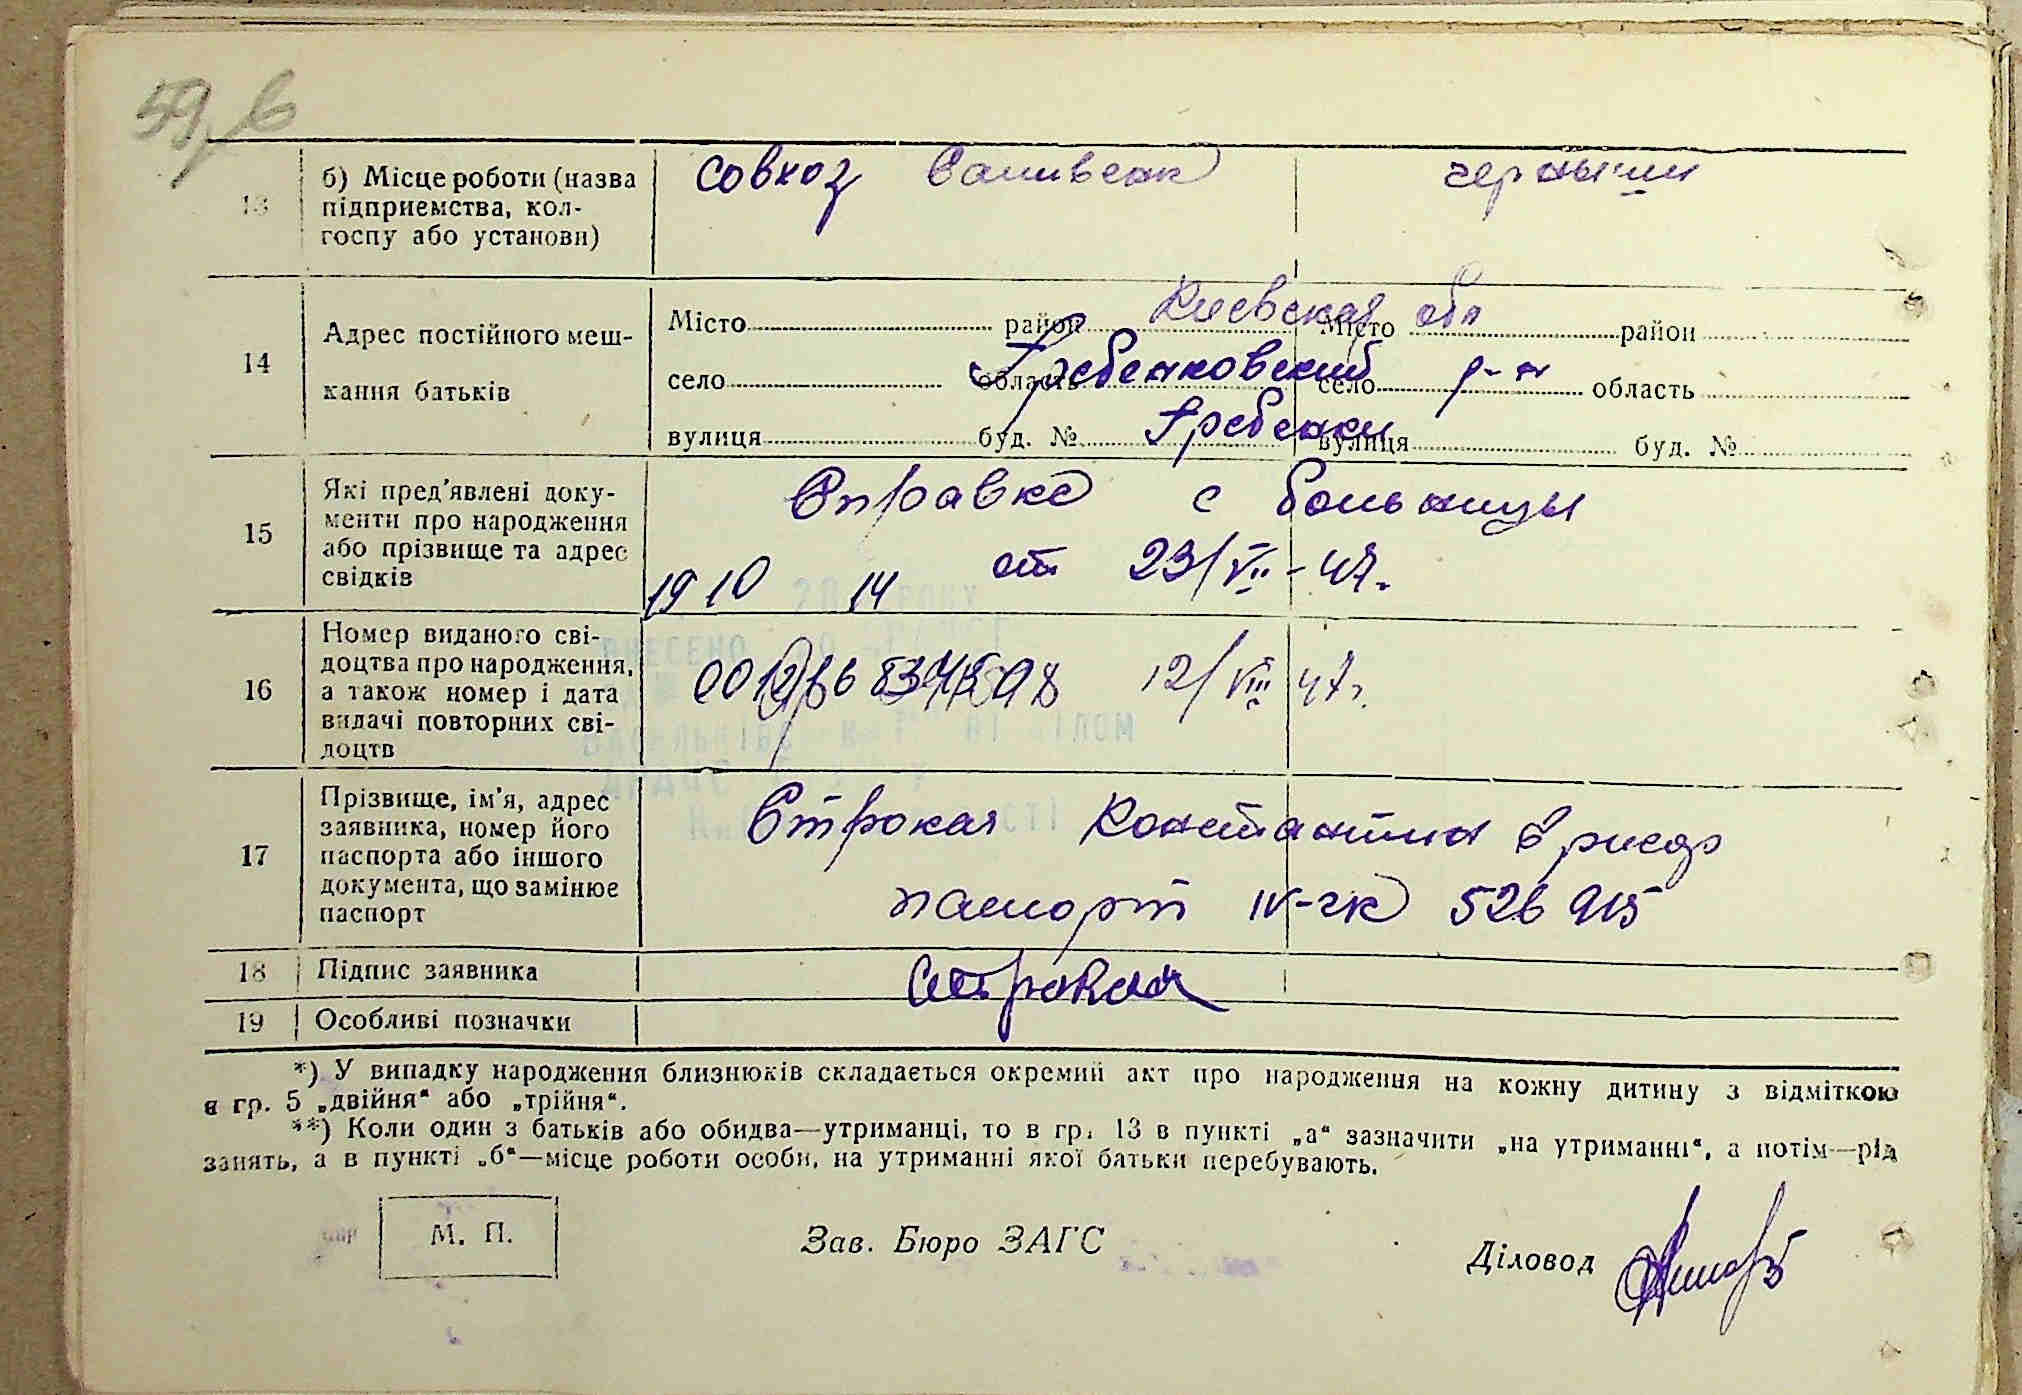 59
13 б) Місце роботи (назва підприемства, колгоспу або установи) совхоз
14 Адрес постійного мешкання батьків
Місто район Киевская обл Місто район
село область Гребенковский р-н село область
вулиця буд. № Гребенки вулиця буд. №
15 Які пред'явлені документи про народження або прізвище та адрес свідків
Справка с больницы
от 23/VII-47г.
1910 14
16 Номер виданого свідоцтва про народження, а також номер і дата видачі повторних свідоцтв
12/VIII 47г.
17 Прізвище, ім'я, адрес заявника, номер його паспорта або іншого документа, що замінює паспорт
Строкая Константин
паспорт IV-чк 526915
18 Підпис заявника Строкая
19 Особливі позначки
*) У випадку народження близнюків складається окремий акт про народження на кожну дитину з відміткою
в гр. 5 „двійня“ або „трійня“.
**) Коли один з батьків або обидва—утриманці, то в гр. 13 в пункті „а“ зазначити „на утриманні“, а потім—рід
занять, а в пункті „б“—місце роботи особи, на утриманні якої батьки перебувають.
М. П. Зав. Бюро ЗАГС Діловод